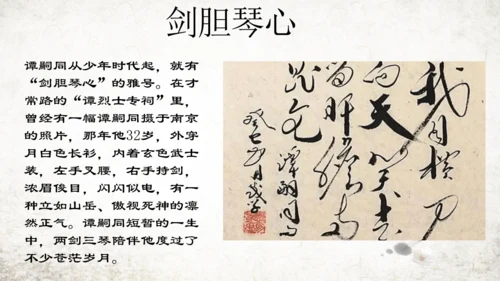 剑胆琴心
谭嗣同从少年时代起，就有
“剑胆琴心”的雅号。在才
常路的“谭烈士专祠”里，
曾经有一幅谭嗣同摄于南京
的照片，那年他32岁，外穿
月白色长衫，内着玄色武士
装，左手叉腰，右手持剑，
浓眉俊目，闪闪似电，有一
种立如山岳、傲视死神的凛
然正气。谭嗣同短暂的一生
中，两剑三琴陪伴他度过了
不少苍茫岁月。
我自横刀
向天笑去
留肝膽两
昆仑 谭嗣同句